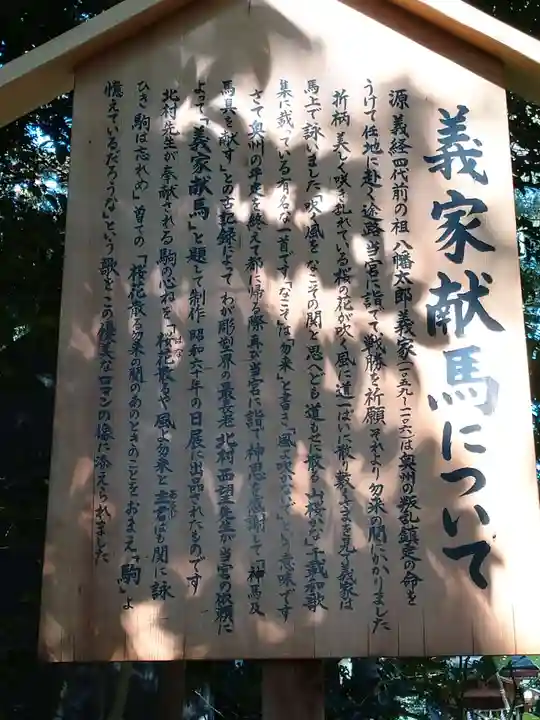 義家献馬について
源 義経四代前の祖 八幡太郎義家(一〇五九~一一〇六)は奥州の叛乱鎮定の命を
うけて任地に赴く途路 当宮に詣でて戦勝を祈願 それより勿来の関にかかりました
折柄 美しく咲き乱れている桜の花が吹く風に道一ぱいに散り敷くさまを見て義家は
馬上で詠いました「吹く風を なこその関と思へども道もせに散る 山桜かな」千載和歌
集に載っている有名な一首です「なこそ」は「勿来」と書き「風よ吹かないで」という意味です
さて奥州の平定を終えて都に帰る際再び当宮に詣で神恩を感謝して「神馬及
馬具を献ず」との古記録によって わが彫刻界の最長老 北村西望先生が当宮の依頼に
よって「義家献馬」と題して制作 昭和六十年の日展に出品されたものです
北村先生が奉献される駒の心ねを「桜花散るや風よ勿来と主はも関に詠
はな
あるじ
ひき 駒は忘れめ」曽ての「桜花散る勿来の関のあのときのことを おまえ「駒」よ
憶えているだろうな」という歌を この優美なロマンの像に添えられました